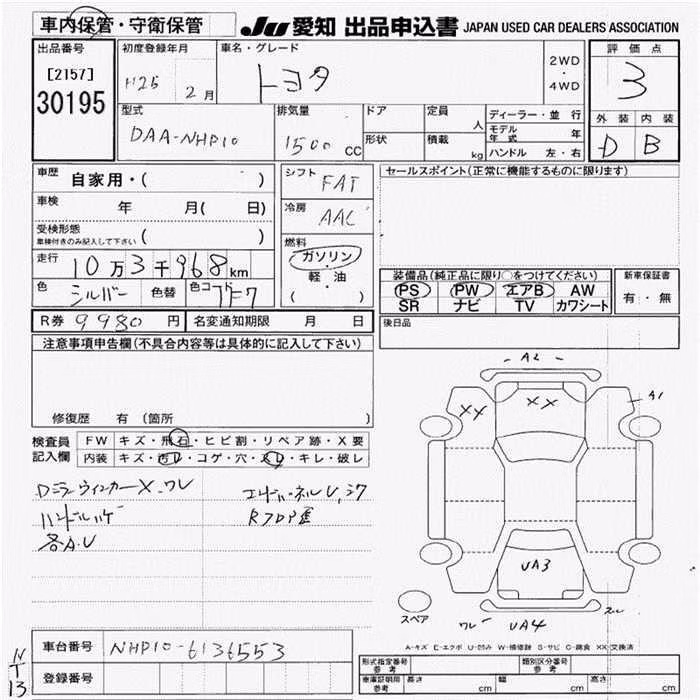 車内保管・守衛保管
JU 愛知 出品申込書 JAPAN USED CAR DEALERS ASSOCIATION
出品番号
[2157]
30195
初度登録年月
H25 2月
車名・グレード
トヨタ
2WD
・
4WD
評価点
3
外装 内装
D B
型式
DAA-NHP10
排気量
1500 CC
ドア
形状
定員 人
積載 kg
ディーラー・並行
モデル年式 年
ハンドル 左・右
車歴
自家用・( )
車検 年 月( 日)
受検形態
車検付きのみ記入して下さい ( )
走行
10万3千968km
色 シルバー 色替 色コード 1F7
シフト
FAT
冷房
AAC
燃料
ガソリン・
軽・油
( )
セールスポイント(正常に機能するものに限ります)
装備品(純正品に限り○をつけてください)
PS PW エアB AW
SR ナビ TV カワシート
新車保証書
有・無
R券 9980円 名変通知期限 月 日
後日品
注意事項申告欄(不具合内容等は具体的に記入して下さい)
修復歴 有 (箇所 )
検査員
記入欄
FW キズ・飛石・ヒビ割・リペア跡・X要
内装 キズ・汚レ・コゲ・穴・スレ・キレ・破レ
Dミラーウィンカー X、ワレ
ハンドルハゲ
各A.U
R
AL
XX
XX
A1
UA3
スペア
ワレ UA4
スレ
A-キズ E-エクボ U-凹み W-補修跡 S-サビ C-腐食 XX-交換済
車台番号 NHP10-6136553
登録番号
N
T
13
形式指定番号
参考
類別区分番号
参考
車庫証明用
参考
長さ cm 幅 cm 高さ cm